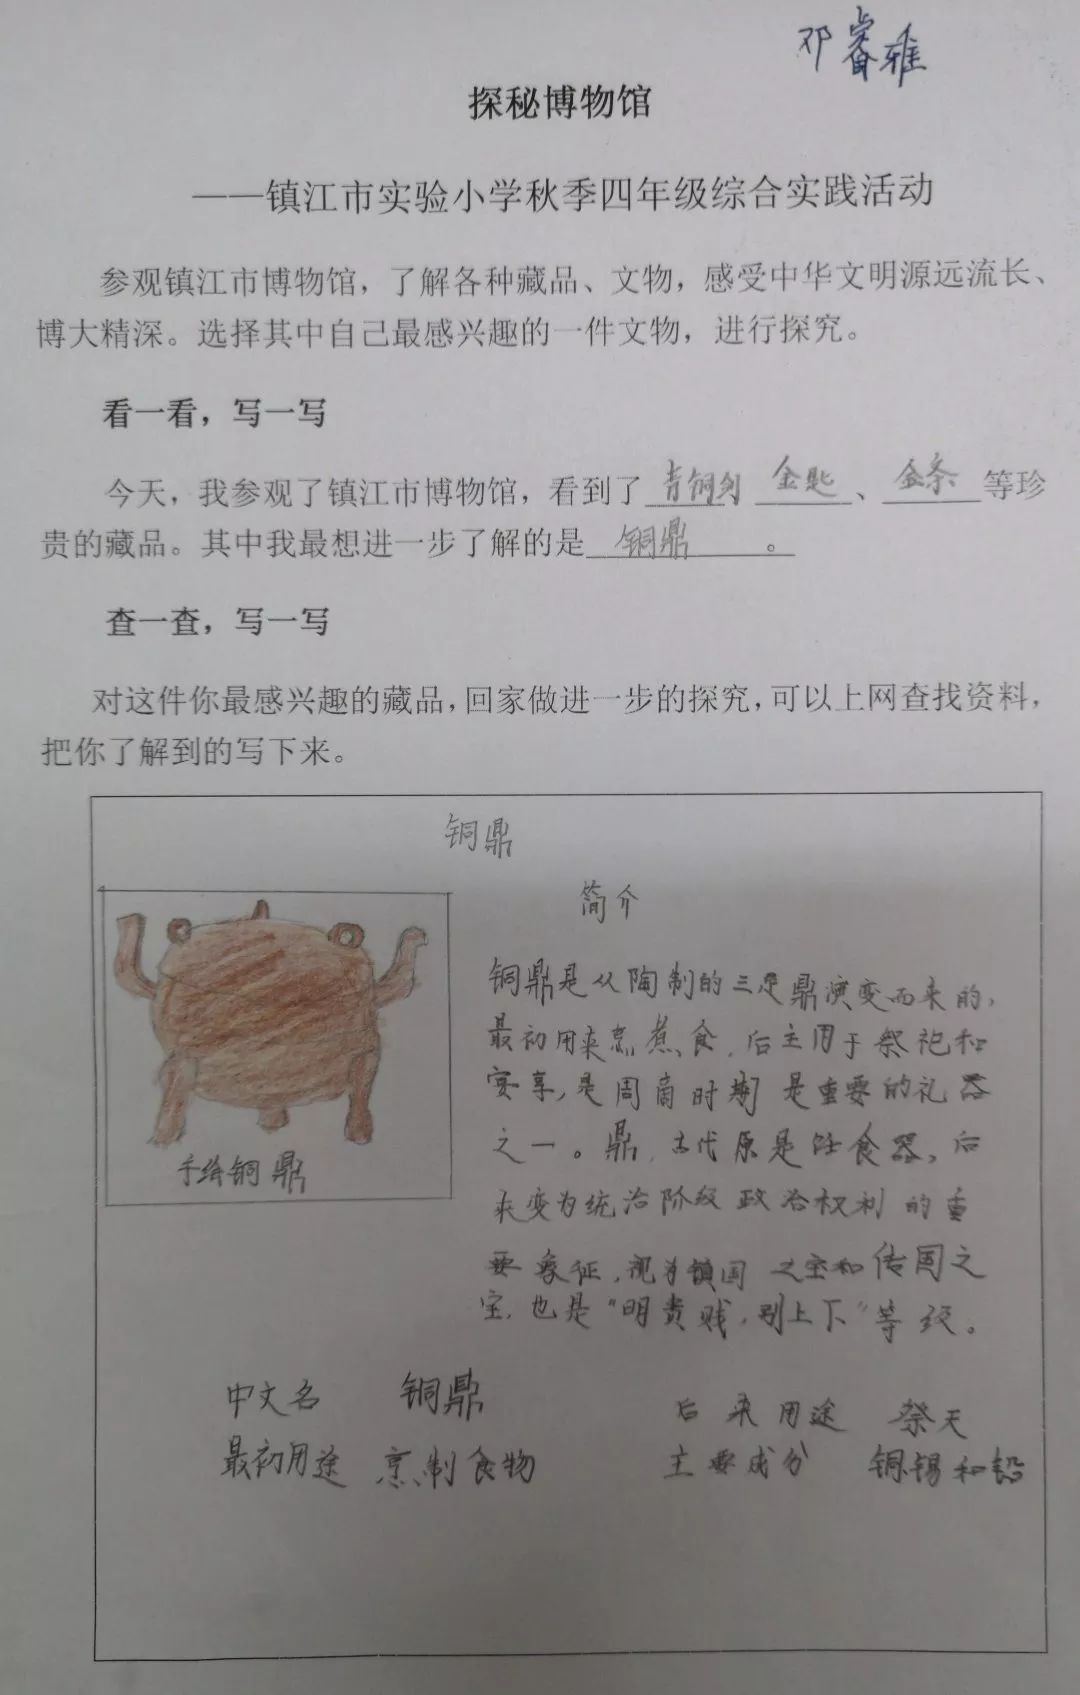 邓睿雅
探秘博物馆
——镇江市实验小学秋季四年级综合实践活动
参观镇江市博物馆，了解各种藏品、文物，感受中华文明源远流长、
博大精深。选择其中自己最感兴趣的一件文物，进行探究。
看一看，写一写
今天，我参观了镇江市博物馆，看到了青铜剑 金匙、金条等珍
贵的藏品。其中我最想进一步了解的是铜鼎。
查一查，写一写
对这件你最感兴趣的藏品，回家做进一步的探究，可以上网查找资料，
把你了解到的写下来。
铜鼎
简介
铜鼎是从陶制的三足鼎演变而来的，
最初用来烹煮食，后主用于祭祀和
宴享，是周商时期是重要的礼器
之一。鼎，古代原是饪食器，后
来变为统治阶级政治权利的重
要象征，视为镇国之宝和传国之
宝，也是“明贵贱，别上下”等级。
手绘铜鼎
中文名 铜鼎
后来用途 祭天
最初用途 烹制食物
主要成分 铜锡和铅